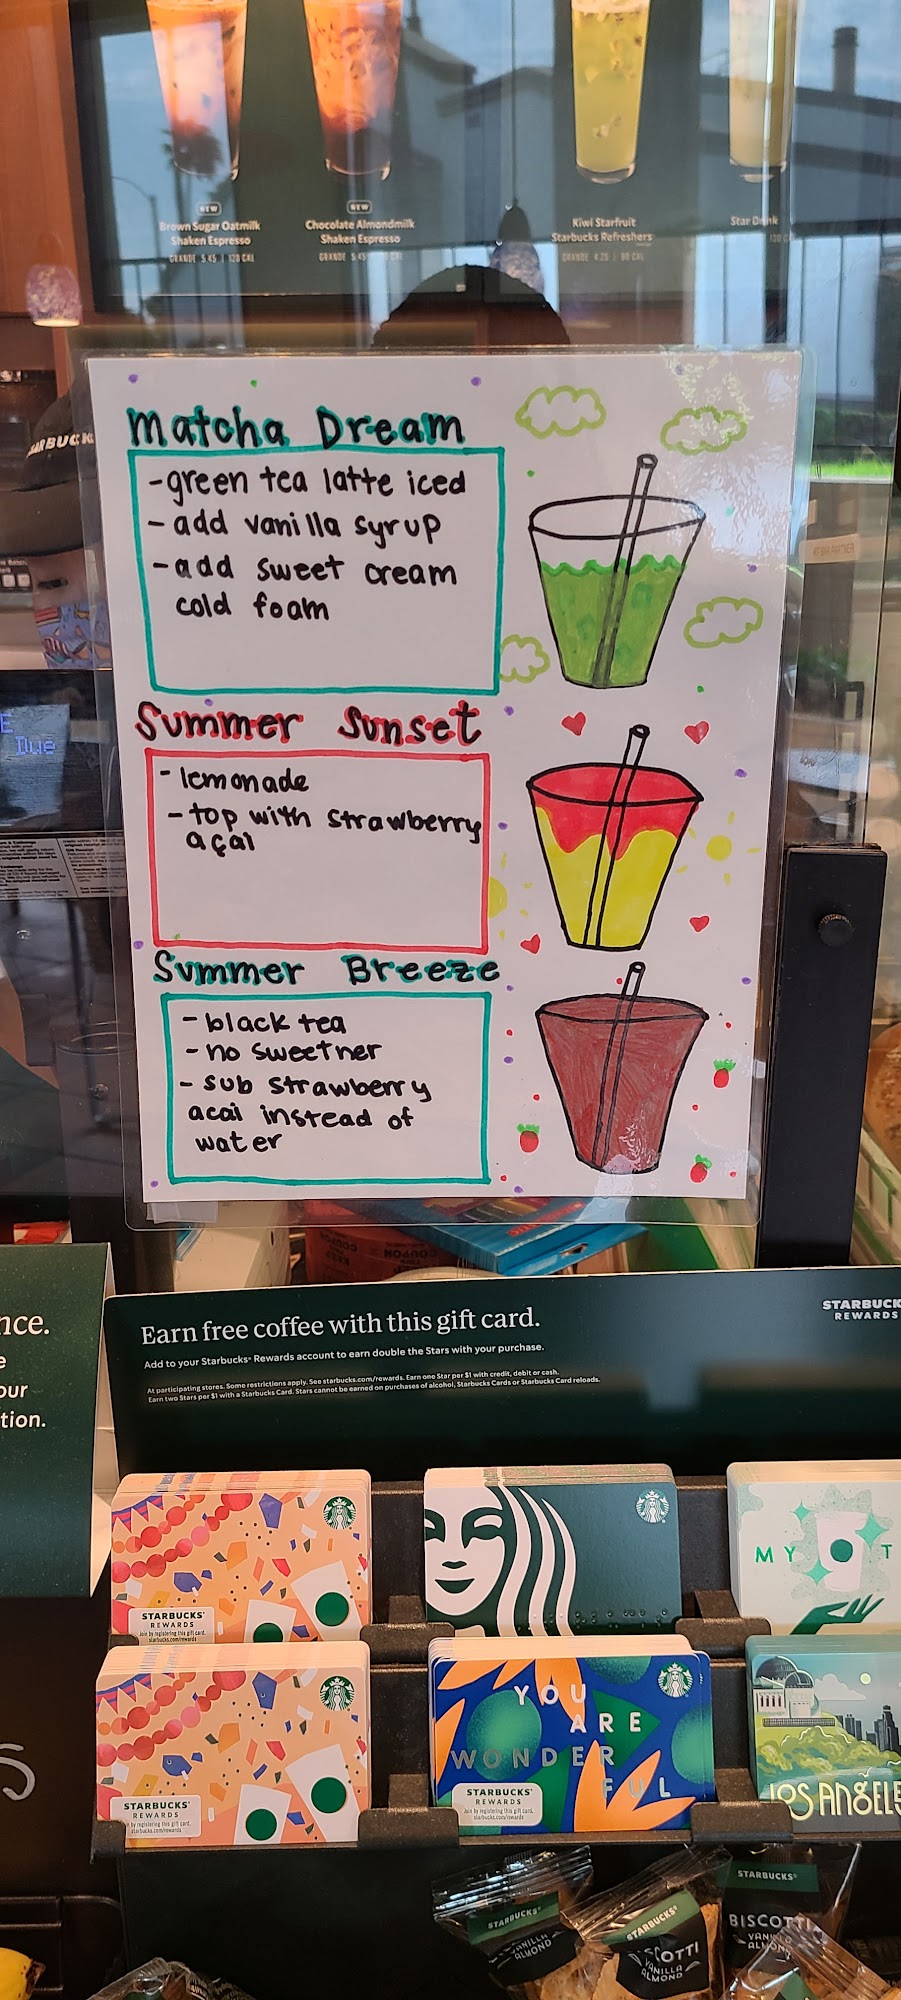 NEW
Brown Sugar Oatmilk
Shaken Espresso
GRANDE 5.45 | 120 CAL
NEW
Chocolate Almondmilk
Shaken Espresso
GRANDE 5.45
Kiwi Starfruit
Starbucks Refreshers
GRANDE 4.25 | 90 CAL
Star Drink
Matcha Dream
-green tea latte iced
- add vanilla syrup
- add sweet cream
cold foam
Summer Sunset
- lemonade
- top with strawberry
açai
Summer Breeze
- black tea
- no sweetner
- sub strawberry
acai instead of
water
Due
COUPON
Earn free coffee with this gift card.
Add to your Starbucks® Rewards account to earn double the Stars with your purchase.
At participating stores. Some restrictions apply. See starbucks.com/rewards. Earn one Star per $1 with credit, debit or cash.
Earn two Stars per $1 with a Starbucks Card. Stars cannot be earned on purchases of alcohol, Starbucks Cards or Starbucks Card reloads.
STARBUCK
REWARDS
nce.
e
our
tion.
STARBUCKS®
REWARDS
Join by registering this gift card.
starbucks.com/rewards
MY T
STARBUCKS®
REWARDS
by registering this gift card.
starbucks.com/rewards
YOU
ARE
WONDER
FUL
STARBUCKS®
REWARDS
Join by registering this gift card.
starbucks.com/rewards
LOS ANGELES
STARBUCKS®
VANILLA
ALMOND
STARBUCKS®
COTTI
VANILLA
ALMOND
STARBUCKS®
BISCOTTI
VANILLA
ALMOND